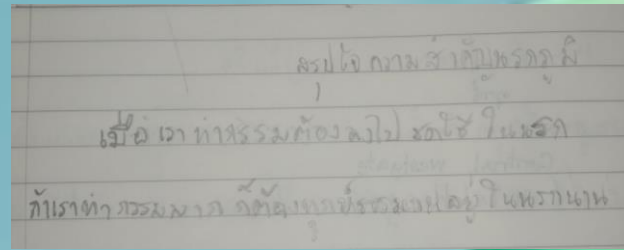 สรุปใจความสำคัญนรกภูมิ
เมื่อเราทำกรรมต้องลงไปชดใช้ในนรก
ถ้าเราทำกรรมมาก ก็ต้องทุกข์ทรมานอยู่ในนรกนาน